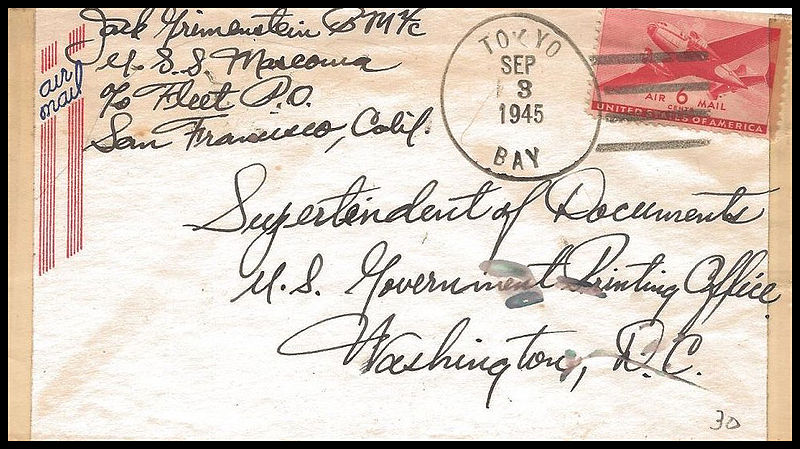 Jack Grimenstein BM 1/c
U.S.S. Mascoma
c/o Fleet P.O.
San Francisco, Calif.
air
mail
TOKYO
SEP
3
1945
BAY
AIR 6 MAIL
CENTS
UNITED STATES OF AMERICA
Supertendent of Documents
U.S. Government Printing Office
Washington, D.C.
30